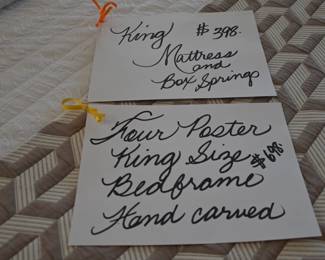 King $398.
Mattress
and
Box Springs
Four Poster
King Size $698
Bedframe
Hand carved